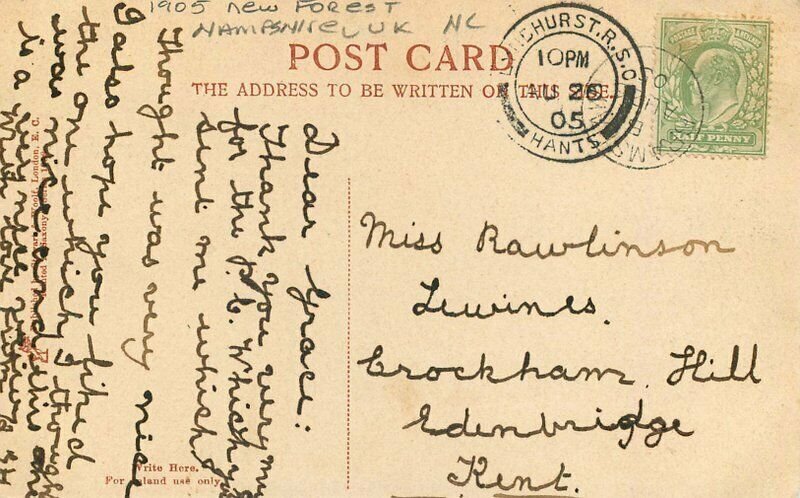 1905 NEW FOREST
HAMPSHIRE, UK NC
POST CARD
THE ADDRESS TO BE WRITTEN ON THIS SIDE.
LYNDHURST. R.S.O
10 PM
AU 26
05
HANTS
HALF PENNY
Dear Grace:
Thank you very mu
for the p.c. which y
sent me which
thought was very nice
I also hope you liked
the one which I thoug
was nice and this one
is a very nice
with love
Write Here.
For Inland use only
Woolf, London, E. C.
Saxony
Miss Rawlinson
Lewines.
Crockham Hill
Edenbridge
Kent.